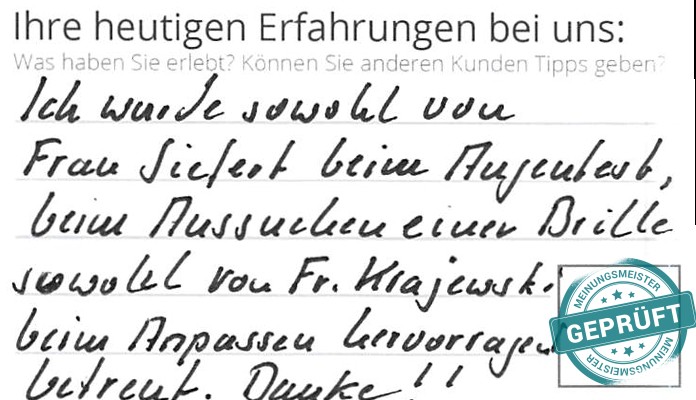 Ihre heutigen Erfahrungen bei uns:
Was haben Sie erlebt? Können Sie anderen Kunden Tipps geben?
Ich wurde sowohl von
Frau Siefert beim Augentest,
beim Aussuchen einer Brille
sowohl von Fr. Krajewski
beim Anpassen hervorragen
betreut. Danke!!
MEINUNGSMEISTER
GEPRÜFT
MEINUNGSMEISTER